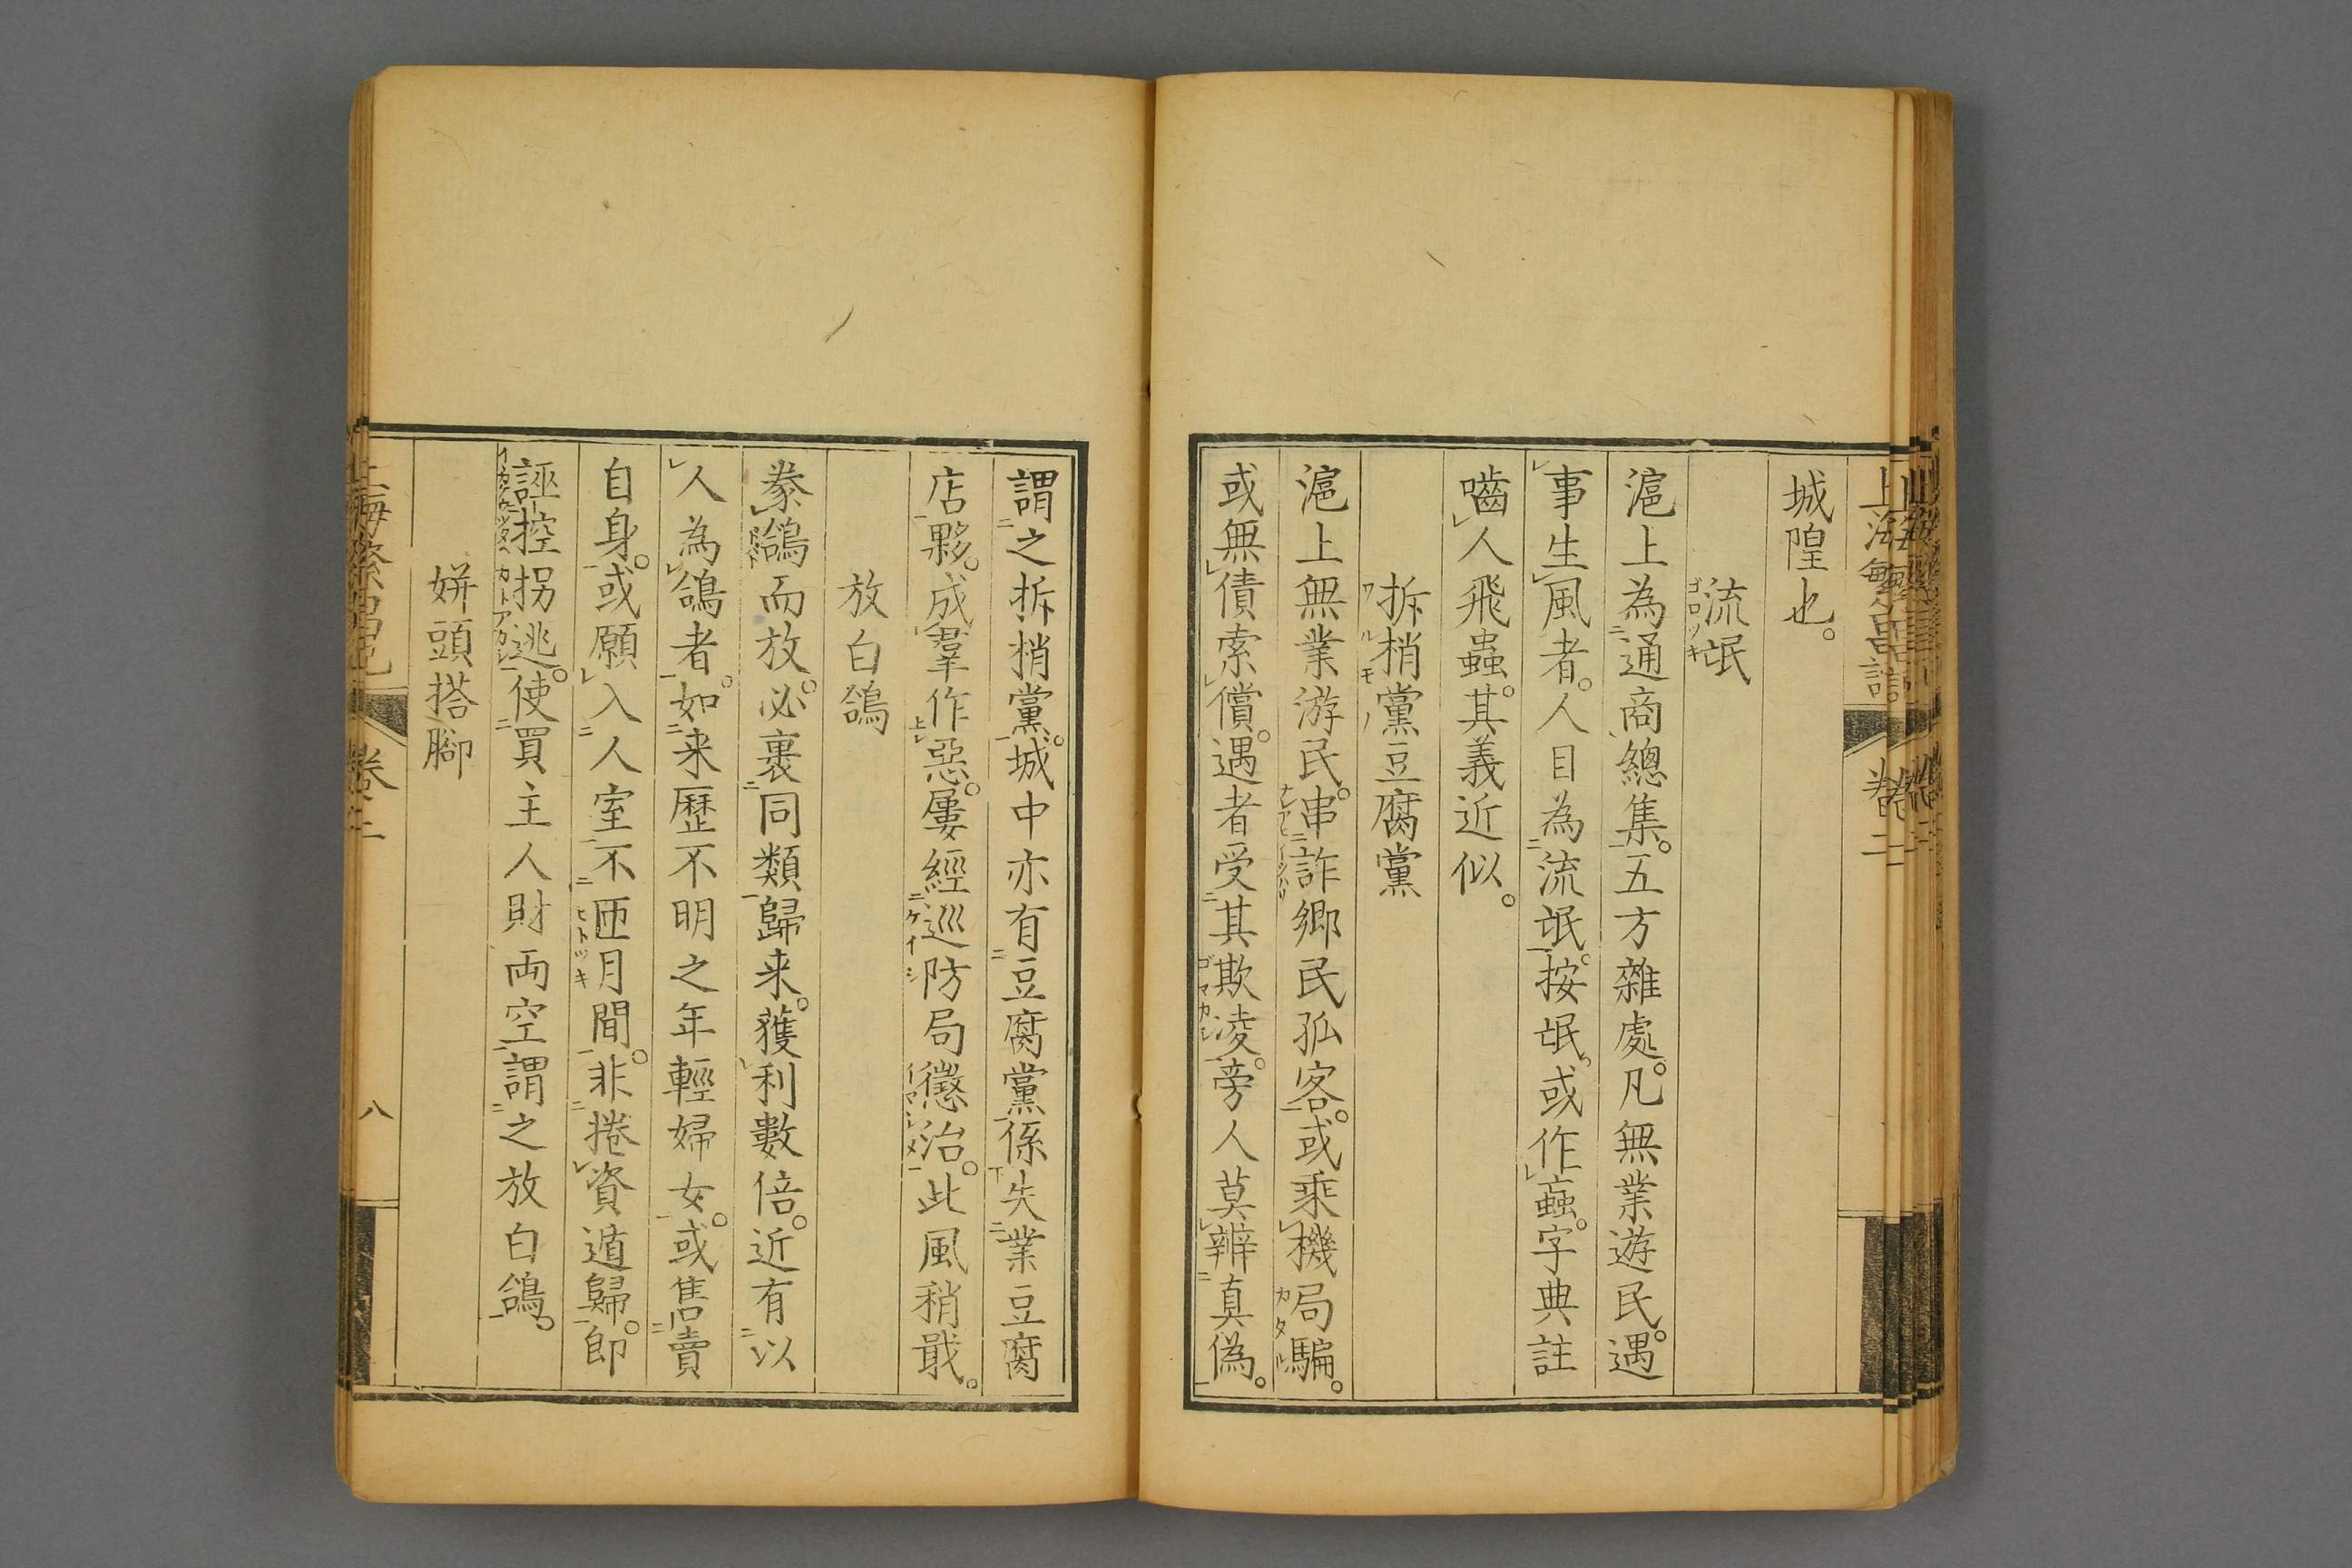 上海繁昌誌 卷二
城隍也。
流氓
滬上為通商總集。五方雜處。凡無業遊民。遇
事生風者。人目為流氓。按氓、或作蝱。字典註
嚙人飛蟲。其義近似。
拆梢黨豆腐黨
滬上無業游民。串詐鄉民孤客。或乘機局騙。
或無債索償。遇者受其欺凌。旁人莫辨真偽。
謂之拆梢黨。城中亦有豆腐黨係失業豆腐
店夥。成羣作惡。屢經巡防局懲治。此風稍戢。
放白鴿
豢鴿而放。必裹同類歸来。獲利數倍。近有以
人為鴿者。如来歷不明之年輕婦女。或售賣
自身。或願入人室不匝月間。非捲資遁歸。即
誣控拐逃。使買主人財両空謂之放白鴿。
姘頭搭腳
上海繁昌記 卷二 八